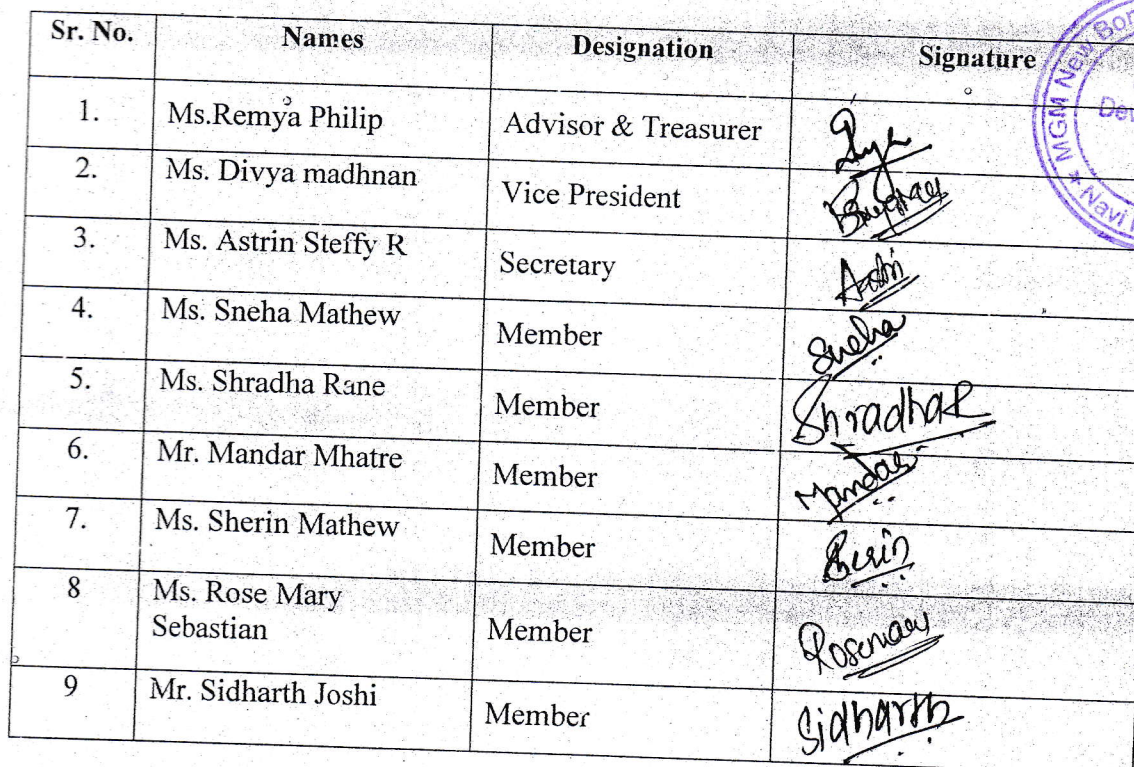 Sr. No. Names Designation Signature
1. Ms.Remya Philip Advisor & Treasurer
2. Ms. Divya madhnan Vice President
3. Ms. Astrin Steffy R Secretary
4. Ms. Sneha Mathew Member Sneha
5. Ms. Shradha Rane Member ShradhaR
6. Mr. Mandar Mhatre Member Mandar
7. Ms. Sherin Mathew Member
8 Ms. Rose Mary
Sebastian Member Rosemary
9 Mr. Sidharth Joshi Member Sidharth
MGM New
Navi